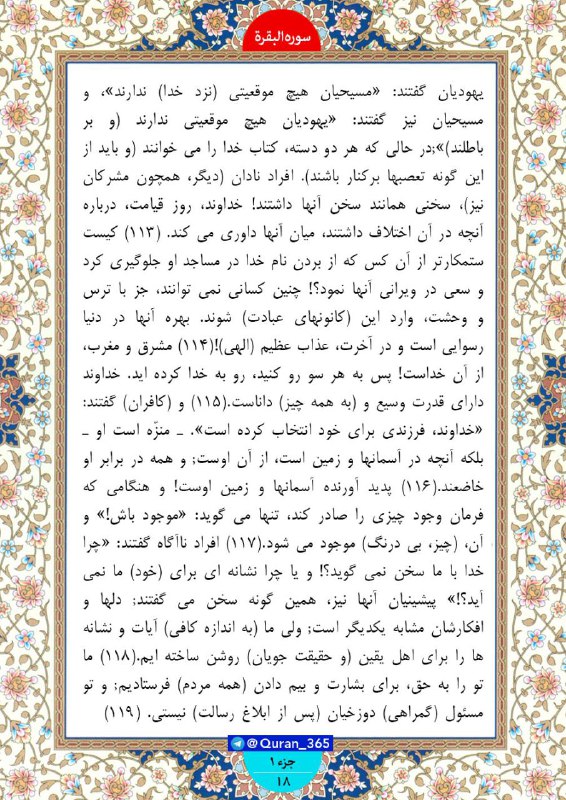 سوره‌البقرة
یهودیان گفتند: «مسیحیان هیچ موقعیتی (نزد خدا) ندارند»، و
مسیحیان نیز گفتند: «یهودیان هیچ موقعیتی ندارند (و بر
باطلند)»;در حالی که هر دو دسته، کتاب خدا را می خوانند (و باید از
این گونه تعصبها برکنار باشند). افراد نادان (دیگر، همچون مشرکان
نیز)، سخنی همانند سخن آنها داشتند! خداوند، روز قیامت، درباره
آنچه در آن اختلاف داشتند، میان آنها داوری می کند. (۱۱۳) کیست
ستمکارتر از آن کس که از بردن نام خدا در مساجد او جلوگیری کرد
و سعی در ویرانی آنها نمود؟! چنین کسانی نمی توانند، جز با ترس
و وحشت، وارد این (کانونهای عبادت) شوند. بهره آنها در دنیا
رسوایی است و در آخرت، عذاب عظیم (الهی)!(۱۱۴) مشرق و مغرب،
از آن خداست! پس به هر سو رو کنید، رو به خدا کرده اید. خداوند
دارای قدرت وسیع و (به همه چیز) داناست.(۱۱۵) و (کافران) گفتند:
«خداوند، فرزندی برای خود انتخاب کرده است». ـ منزّه است او ـ
بلکه آنچه در آسمانها و زمین است، از آن اوست; و همه در برابر او
خاضعند.(۱۱۶) پدید آورنده آسمانها و زمین اوست! و هنگامی که
فرمان وجود چیزی را صادر کند، تنها می گوید: «موجود باش!» و
آن، (چیز، بی درنگ) موجود می شود.(۱۱۷) افراد ناآگاه گفتند: «چرا
خدا با ما سخن نمی گوید؟! و یا چرا نشانه ای برای (خود) ما نمی
آید؟!» پیشینیان آنها نیز، همین گونه سخن می گفتند; دلها و
افکارشان مشابه یکدیگر است; ولی ما (به اندازه کافی) آیات و نشانه
ها را برای اهل یقین (و حقیقت جویان) روشن ساخته ایم.(۱۱۸) ما
تو را به حق، برای بشارت و بیم دادن (همه مردم) فرستادیم; و تو
مسئول (گمراهی) دوزخیان (پس از ابلاغ رسالت) نیستی. (۱۱۹)
@Quran_365
جزء ۱
۱۸